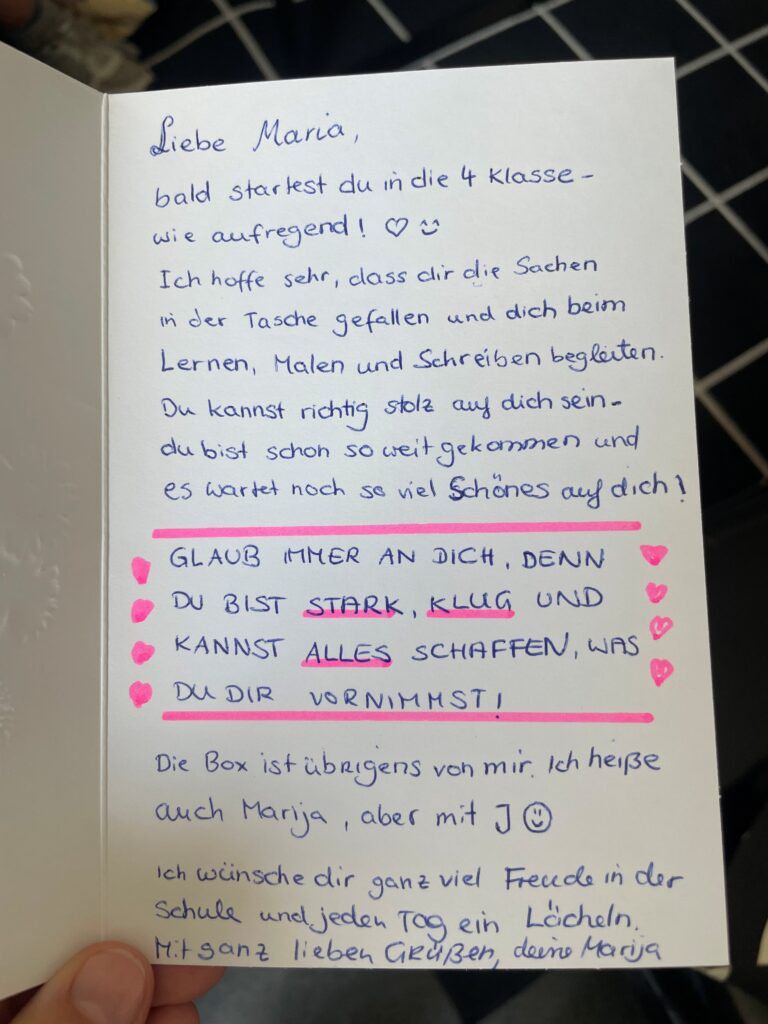 Liebe Maria,
bald startest du in die 4 Klasse -
wie aufregend! ♡ ☺
Ich hoffe sehr, dass dir die Sachen
in der Tasche gefallen und dich beim
Lernen, Malen und Schreiben begleiten.
Du kannst richtig stolz auf dich sein -
du bist schon so weit gekommen und
es wartet noch so viel Schönes auf dich!
GLAUB IMMER AN DICH, DENN
DU BIST STARK, KLUG UND
KANNST ALLES SCHAFFEN, WAS
DU DIR VORNIMMST!
Die Box ist übrigens von mir. Ich heiße
auch Marija, aber mit J ☺
Ich wünsche dir ganz viel Freude in der
Schule und jeden Tag ein Lächeln.
Mit ganz lieben Grüßen, deine Marija